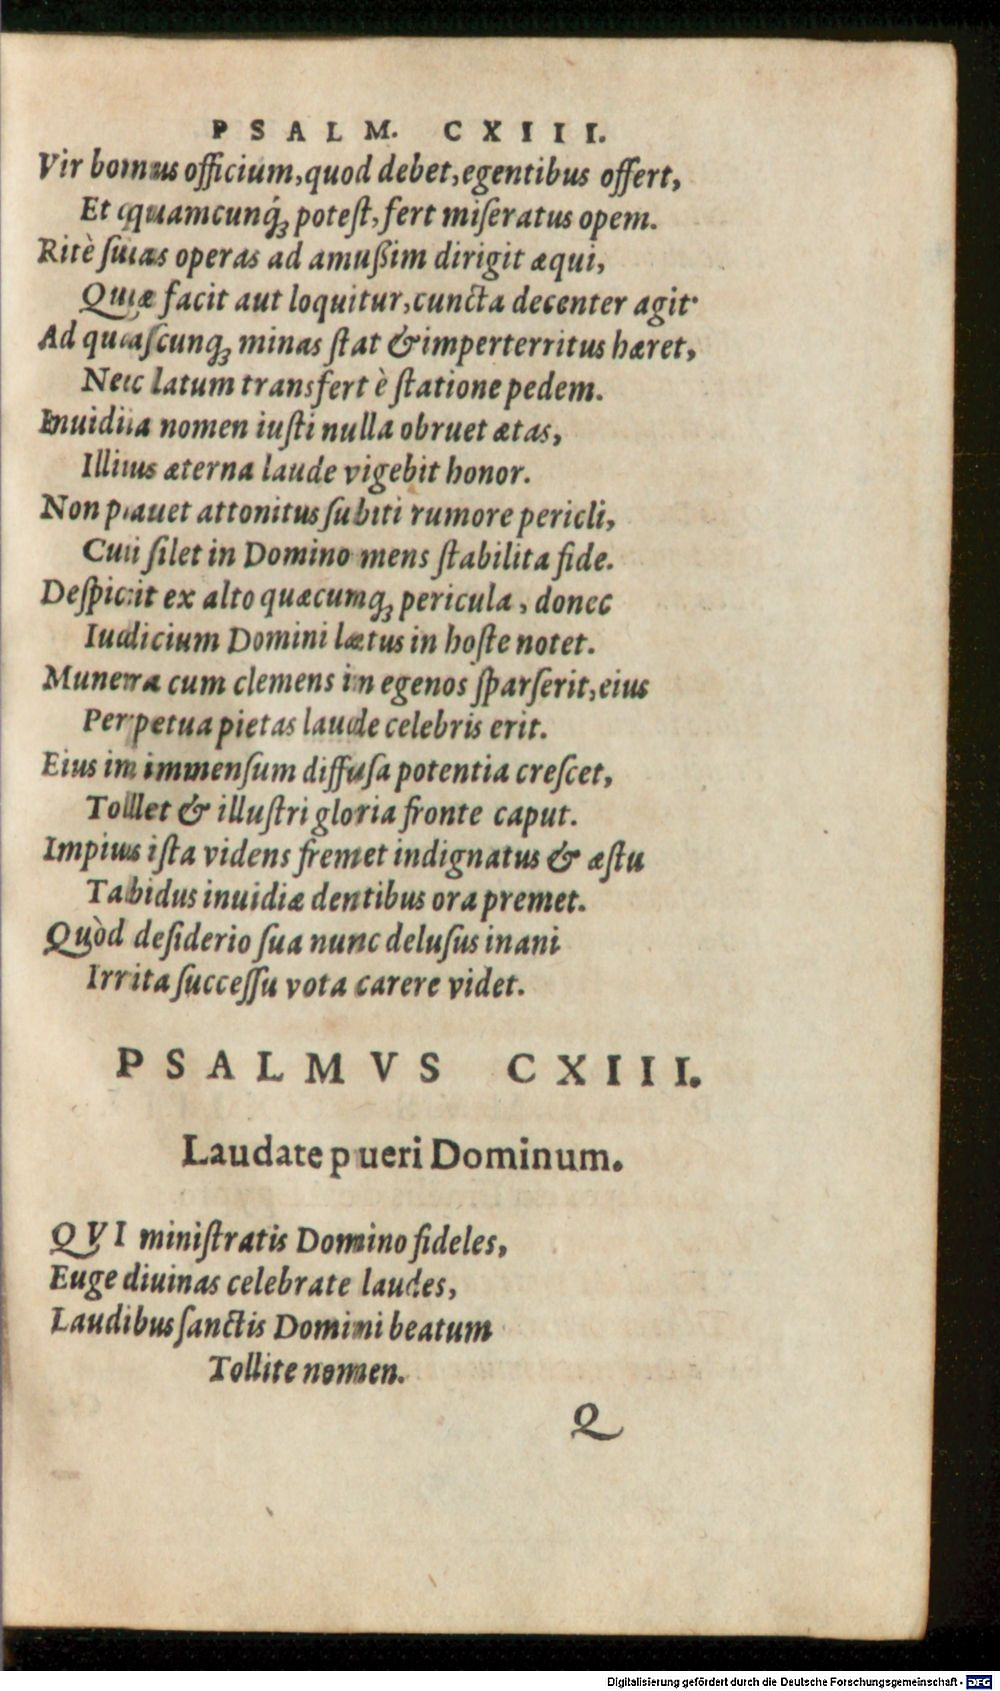 PSALM. CXIII.
Vir bonus officium, quod debet, egentibus offert,
Et quamcunq́; potest, fert miseratus opem.
Ritè suas operas ad amußim dirigit æqui,
Quæ facit aut loquitur, cuncta decenter agit.
Ad quascunq; minas stat & imperterritus hæret,
Nec latum transfert è statione pedem.
Inuidia nomen iusti nulla obruet ætas,
Illius æterna laude vigebit honor.
Non pauet attonitus subiti rumore pericli,
Cui silet in Domino mens stabilita fide.
Despicit ex alto quæcumq; pericula, donec
Iudicium Domini lætus in hoste notet.
Munera cum clemens in egenos sparserit, eius
Perpetua pietas laude celebris erit.
Eius in immensum diffusa potentia crescet,
Tollet & illustri gloria fronte caput.
Impius ista videns fremet indignatus & æstu
Tabidus inuidiæ dentibus ora premet.
Quòd desiderio sua nunc delusus inani
Irrita successu vota carere videt.
PSALMVS CXIII.
Laudate pueri Dominum.
QVI ministratis Domino fideles,
Euge diuinas celebrate laudes,
Laudibus sanctis Domini beatum
Tollite nomen.
Q
Digitalisierung gefördert durch die Deutsche Forschungsgemeinschaft - DFG